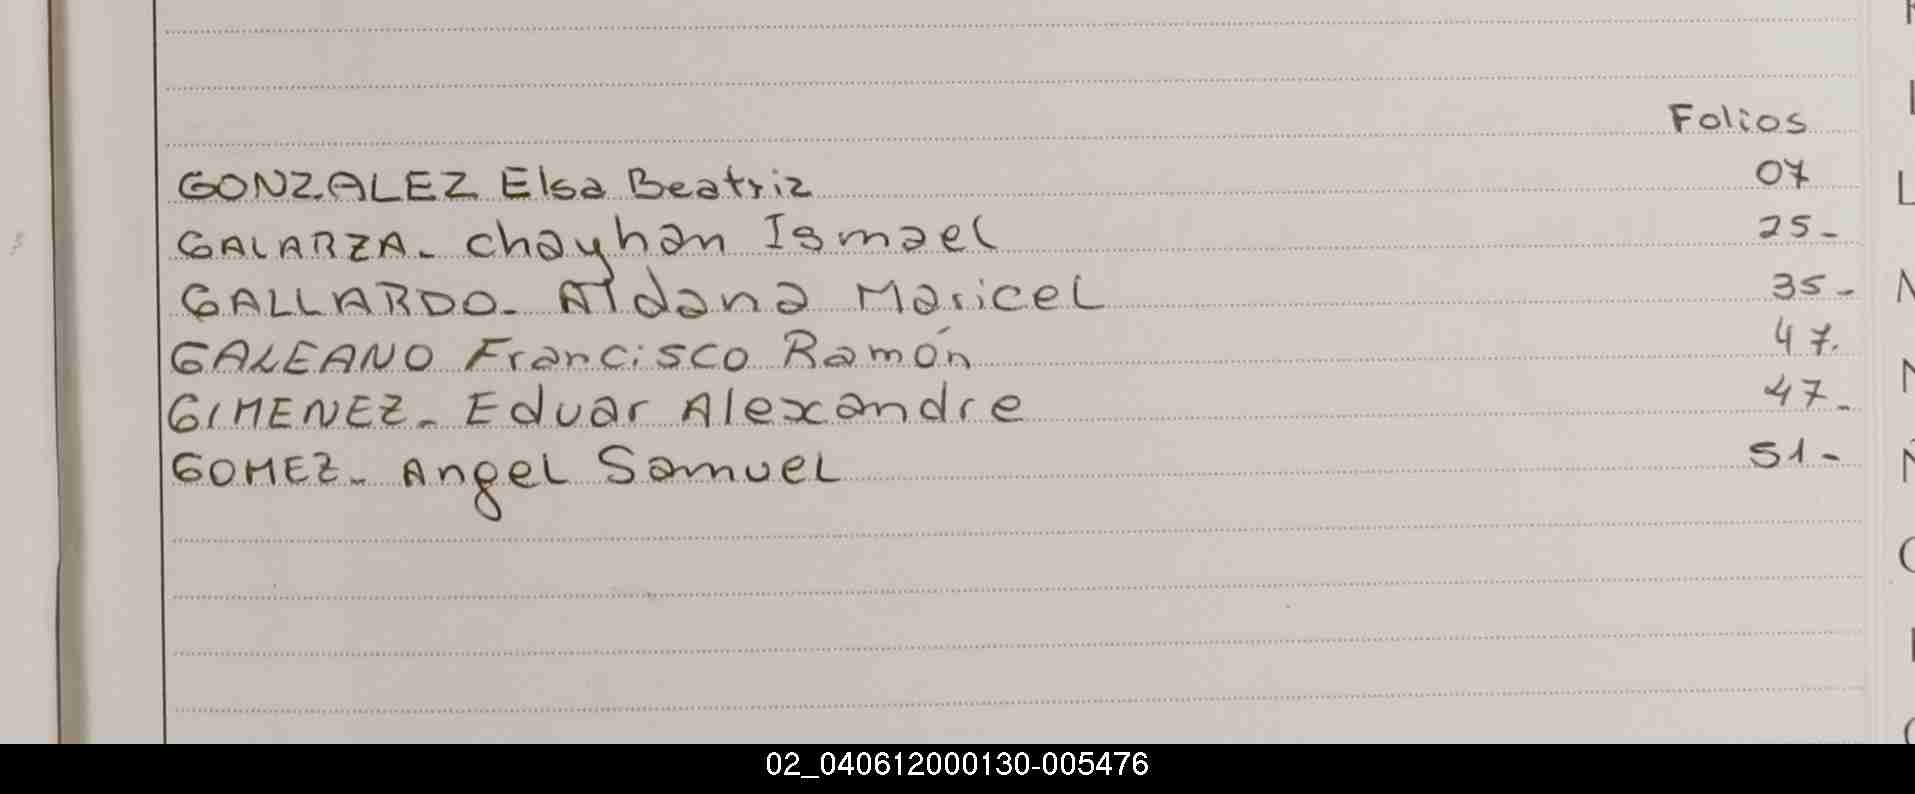 Folios
GONZALEZ Elsa Beatriz 07
GALARZA- Chayhan Ismael 25-
GALLARDO- Aldana Maricel 35-
GALEANO Francisco Ramón 47.
GIMENEZ- Eduar Alexandre 47-
GOMEZ- Angel Samuel 51-
02_040612000130-005476